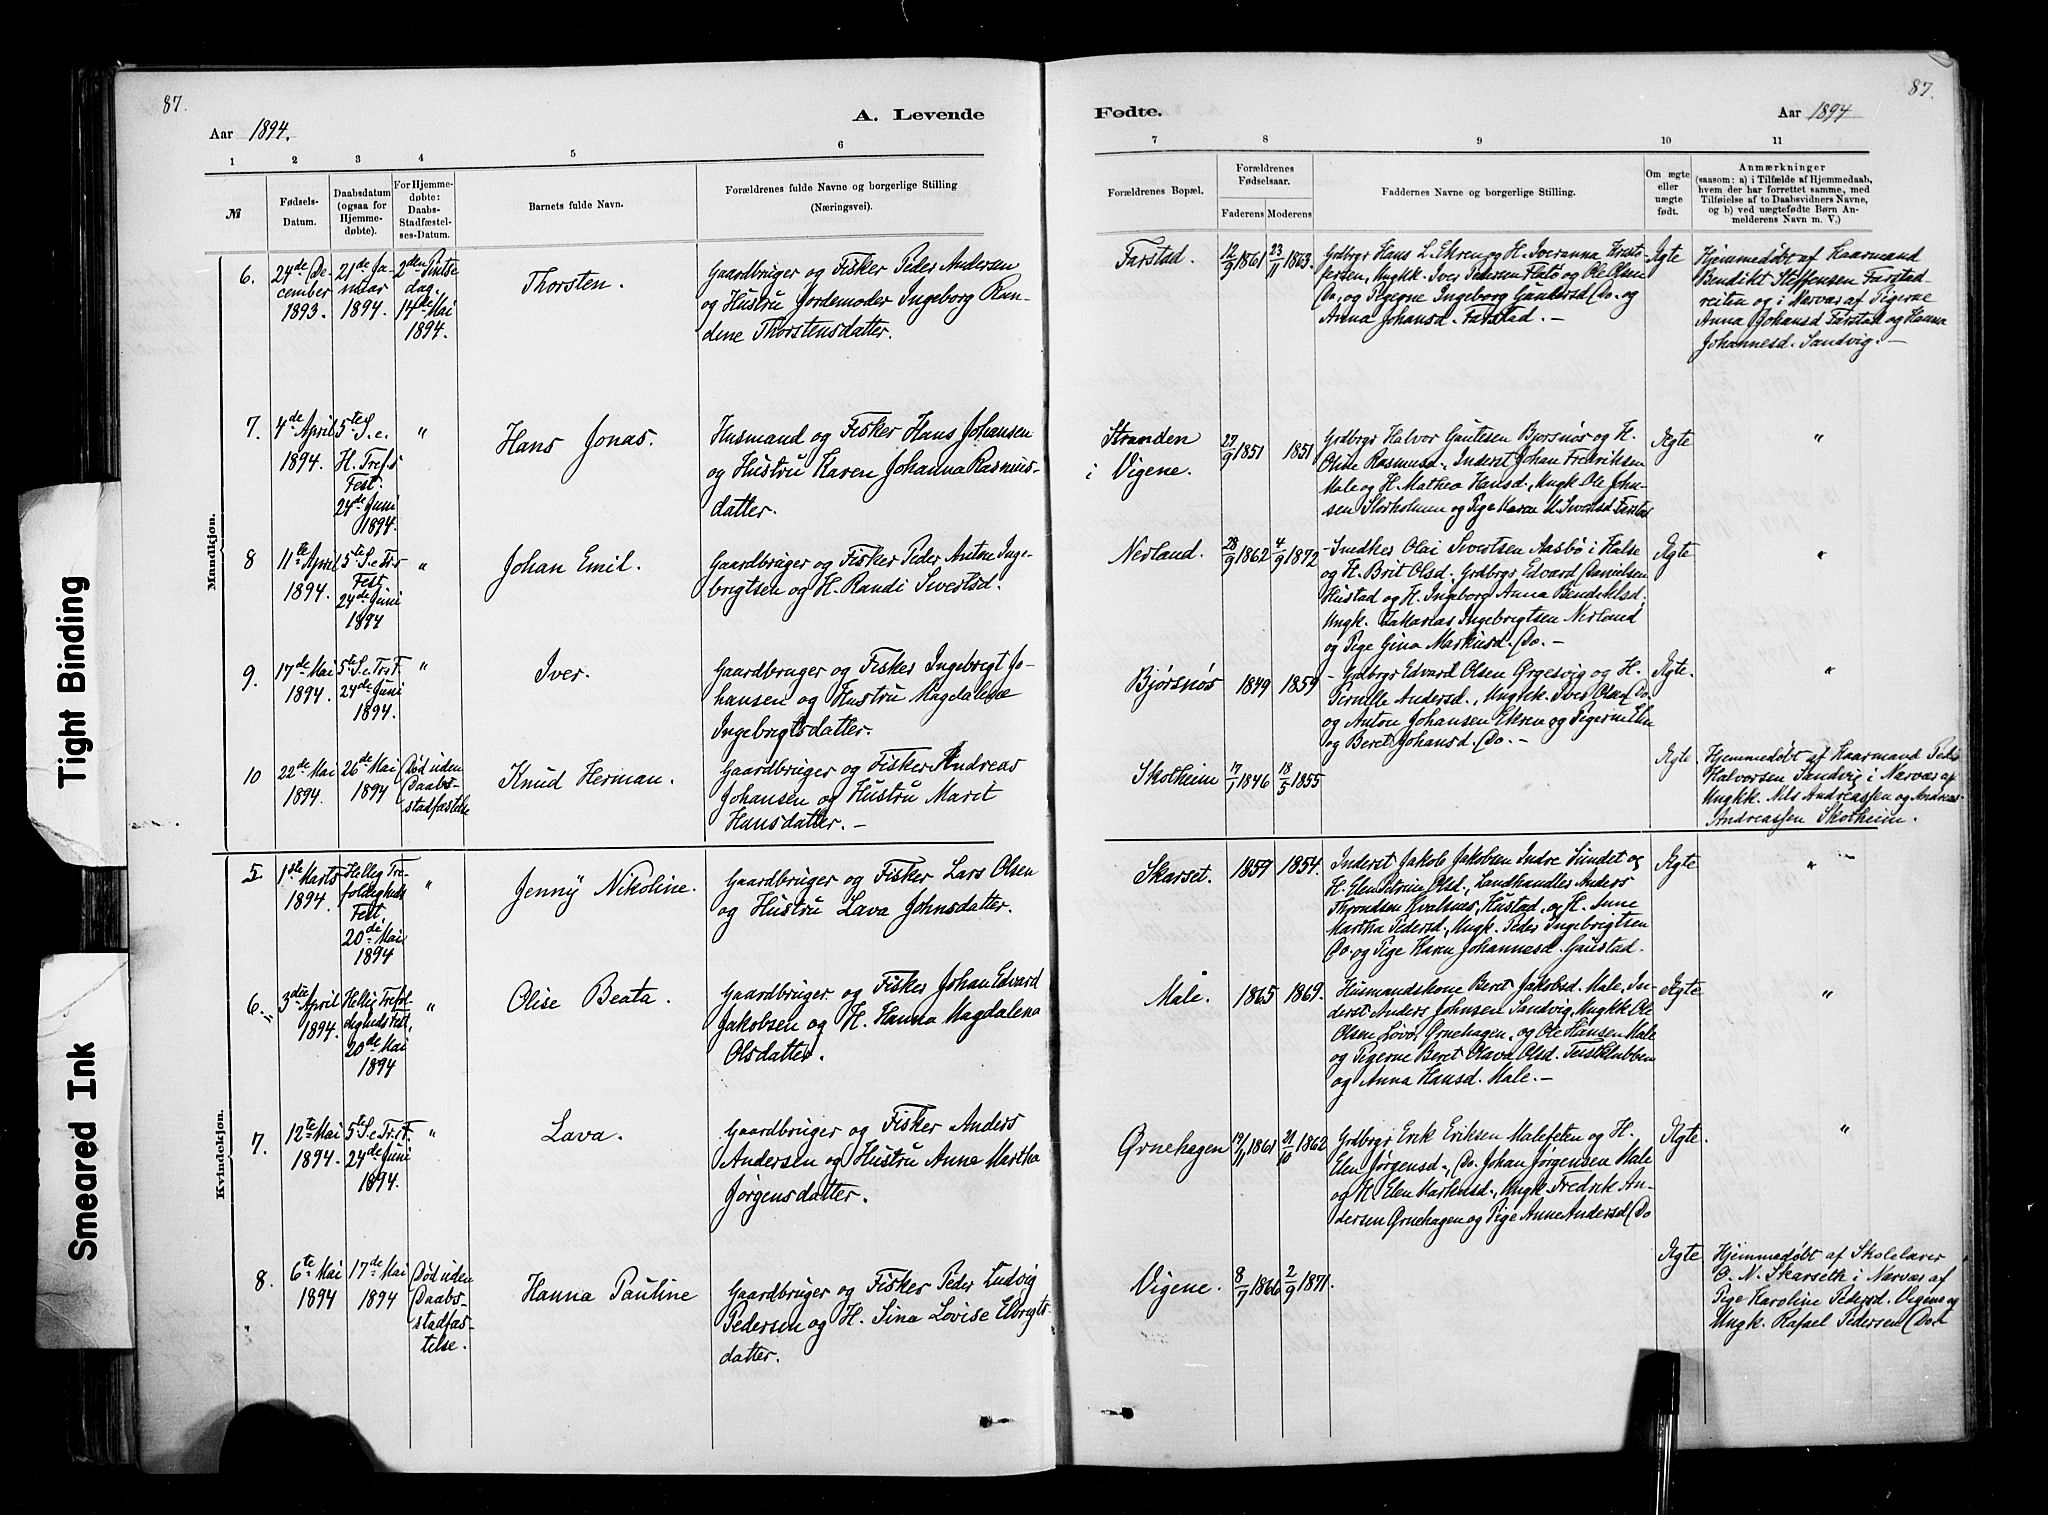 87.
A. Levende
Aar 1894.
1 2 3 4 5 6
№
Fødsels-
Datum.
Daabsdatum
(ogsaa for
Hjemme-
døbte).
For Hjemme-
døbte:
Daabs-
Stadfæstel-
ses-Datum.
Barnets fulde Navn.
Forældrenes fulde Navne og borgerlige Stilling
(Næringsvei).
Mandkjøn.
6.
24de De-
cember
1893.
21de Ja-
nuar
1894.
2den Pintse
dag.
14de Mai
1894.
Thorsten.
Gaardbruger og Fisker Peder Andersen
og Hustru Jordemoder Ingeborg Ran-
dene Thorstensdatter.
7.
4de April
1894.
5te S. e.
H. Trefs
Fest.
24de Juni
1894.
"
Hans Jonas.
Husmand og Fisker Hans Johansen
og Hustru Karen Johanna Rasmus-
datter.
8
11te April
1894.
5te S. e Tr.
Fest
24de Juni
1894
"
Johan Emil.
Gaardbruger og Fisker Peder Anton Inge-
brigtsen og H. Randi Sivertsd.
9.
17de Mai
1894.
5te S. e. Tr. F.
24de Juni
1894.
"
Iver.
Gaardbruger og Fisker Ingebrigt Jo-
hansen og Hustru Magdalene
Ingebrigtsdatter.
10
22de Mai
1894.
26de Mai
1894
Død uden
Daabs-
stadfæstelse
Knud Herman.
Gaardbruger og Fisker Andreas
Johansen og Hustru Maret
Hansdatter. -
Kvindekjøn.
5
1ste Marts
1894.
Hellig Tre-
foldigheds
Fest.
20de Mai
1894
"
Jenny Nikoline.
Gaardbruger og Fisker Lars Olsen
og Hustru Lava Johnsdatter.
6.
3die April
1894.
Hellig Trefol-
digheds Fest,
20de Mai
1894
"
Olise Beata.
Gaardbruger og Fisker Johan Edvard
Jakobsen og H. Hanna Magdalena
Olsdatter.
7.
12te Mai
1894.
5te S. e Tr. F.
24de Juni
1894.
"
Lava.
Gaardbruger og Fisker Anders
Andersen og Hustru Anne Martha
Jørgensdatter.
8.
6te Mai
1894
17de Mai
1894
Død uden
Daabs-
stadfæs-
telse.
Hanna Pauline
Gaardbruger og Fisker Peder Ludvig
Pedersen og H. Sina Lovise Elbrigts-
datter.
87.
Fødte.
Aar 1894
7 8 9 10 11
Forældrenes Bopæl.
Forældrenes
Fødselsaar.
Faderens Moderens
Faddernes Navne og borgerlige Stilling.
Om ægte
eller
uægte
født.
Anmærkninger
(saasom: a) i Tilfælde af Hjemmedaab,
hvem der har forrettet samme, med
Tilføielse af to Daabsvidners Navne,
og b) ved uægtefødte Børn An-
melderens Navn m. V.)
Farstad.
12/9 1861
23/11 1863.
Grdbrgr Hans L. Ekren og H. Iveranna Krist-
fersen, Ungkk. Iver Pedersen Flatø og Ole Olsen
Do, og Pigerne Ingeborg Gunnersd Do. og
Anna Johansd. Farstad. -
Ægte
Hjemmedøbt af Kaarmand
Bendikt Steffensen Farstad-
reiten og i Nærvær af Pigerne
Anna Johansd Farstad og Hanna
Johannesd. Sandvig. -
Stranden
i Vigene.
27/9 1851
1851
Grdbrgr Halvor Gautesen Bjørsnøs og H.
Oline Rasmusd., Inderst Johan Fredriksen
Male og H. Mathea Hansd., Ungk Ole John-
sen Storholmen og Pige Karen M. Sivertsd Farstad
Ægte
"
Nerland.
28/9 1862
4/9 1872
- Smdkes Olai Sivertsen Aasbø i Halse
og H. Brit Olsd. Grdbrgr Edvard Danielsen
Hustad og H. Ingeborg Anna Bendiktsd.
Ungk. Zakarias Ingebrigtsen Nerland
og Pige Gina Markusd. Do. -
Ægte
"
Bjørsnøs
1849
1859
- Grdbrgr Edvard Olsen Ørgesvig og H.
Pernille Andersd., Ungkk. Iver Olsen Do.
og Anton Johansen Ekren og Pigerne Elen
og Beret Johansd. Do. -
Ægte.
"
Skotheim
17/1 1846
18/5 1855
Ægte
Hjemmedøbt af Kaarmand Peder
Halvorsen Sandvig i Nærvær af
Ungkk. Nils Andreassen og Andreas
Andreassen Skotheim.
Skarset.
1859
1854.
Inderst Jakob Jakobsen Indre Sundet og
H. Elen Petrine Olsd., Landhandler Anders
Throndsen Hvalnes, Hustad, og H. Anne
Martha Pedersd., Ungk. Peder Ingebrigtsen
Do. og Pige Karen Johannesd. Gaustad.
Ægte
"
Male.
1865
1869.
Husmandskone Beret Jakobsd. Male, In-
derst Anders Johnsen Sandvig, Ungkk Ole
Olsen Løvø, Ørnehagen, og Ole Hansen Male
og Pigerne Beret Olava Olsd. Teistklubben
og Anna Hansd. Male. -
Ægte
"
Ørnehagen
19/11 1861
31/10 1862
Grdbrgr Erik Eriksen Malefeten og H.
Elen Jørgensd., Do. Johan Jørgensen Male
og H. Elen Markusd., Ungk. Fredrik An-
dersen Ørnehagen og Pige Anne Andersd Do
Ægte.
"
Vigene.
8/7 1866
2/9 1871.
Ægte
Hjemmedøbt af Skolelærer
O. N. Skarseth i Nærvær af
Pige Karoline Pedersd. Vigene og
Ungk. Rafael Pedersen Do.
Tight Binding
Smeared Ink